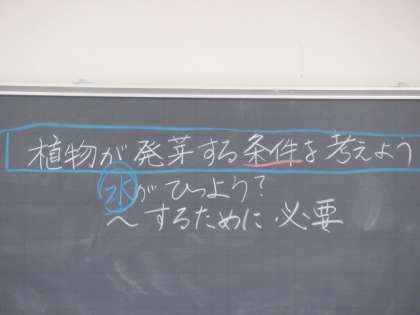 植物が発芽する条件を考えよう
水がひつよう?
〜するために必要